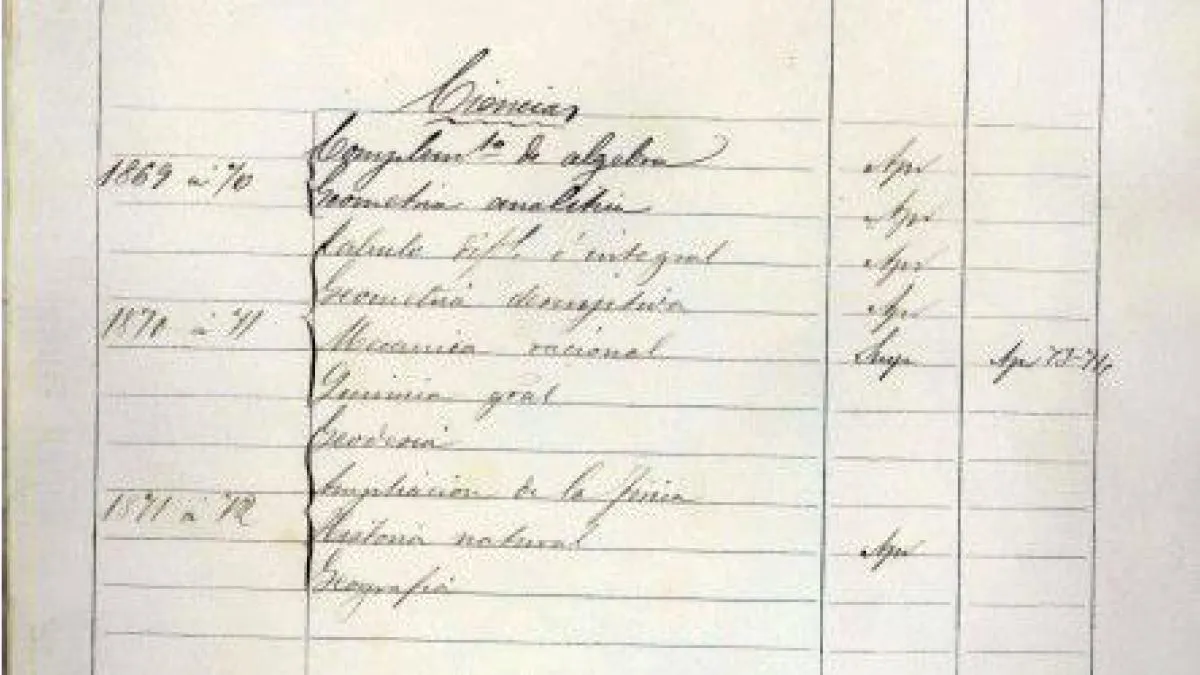 Ciencias
Complemto de algebra Apr
1869 á 70
Geometria analitica Apr
Calculo difl. é integral Apr
Geometria descriptiva Apr
1870 á 71
Mecanica racional Susp Apr 73-74
Quimica gral
Geodesia
Ampliacion de la fisica
1871 á 72
Historia natural Apr
Geografia